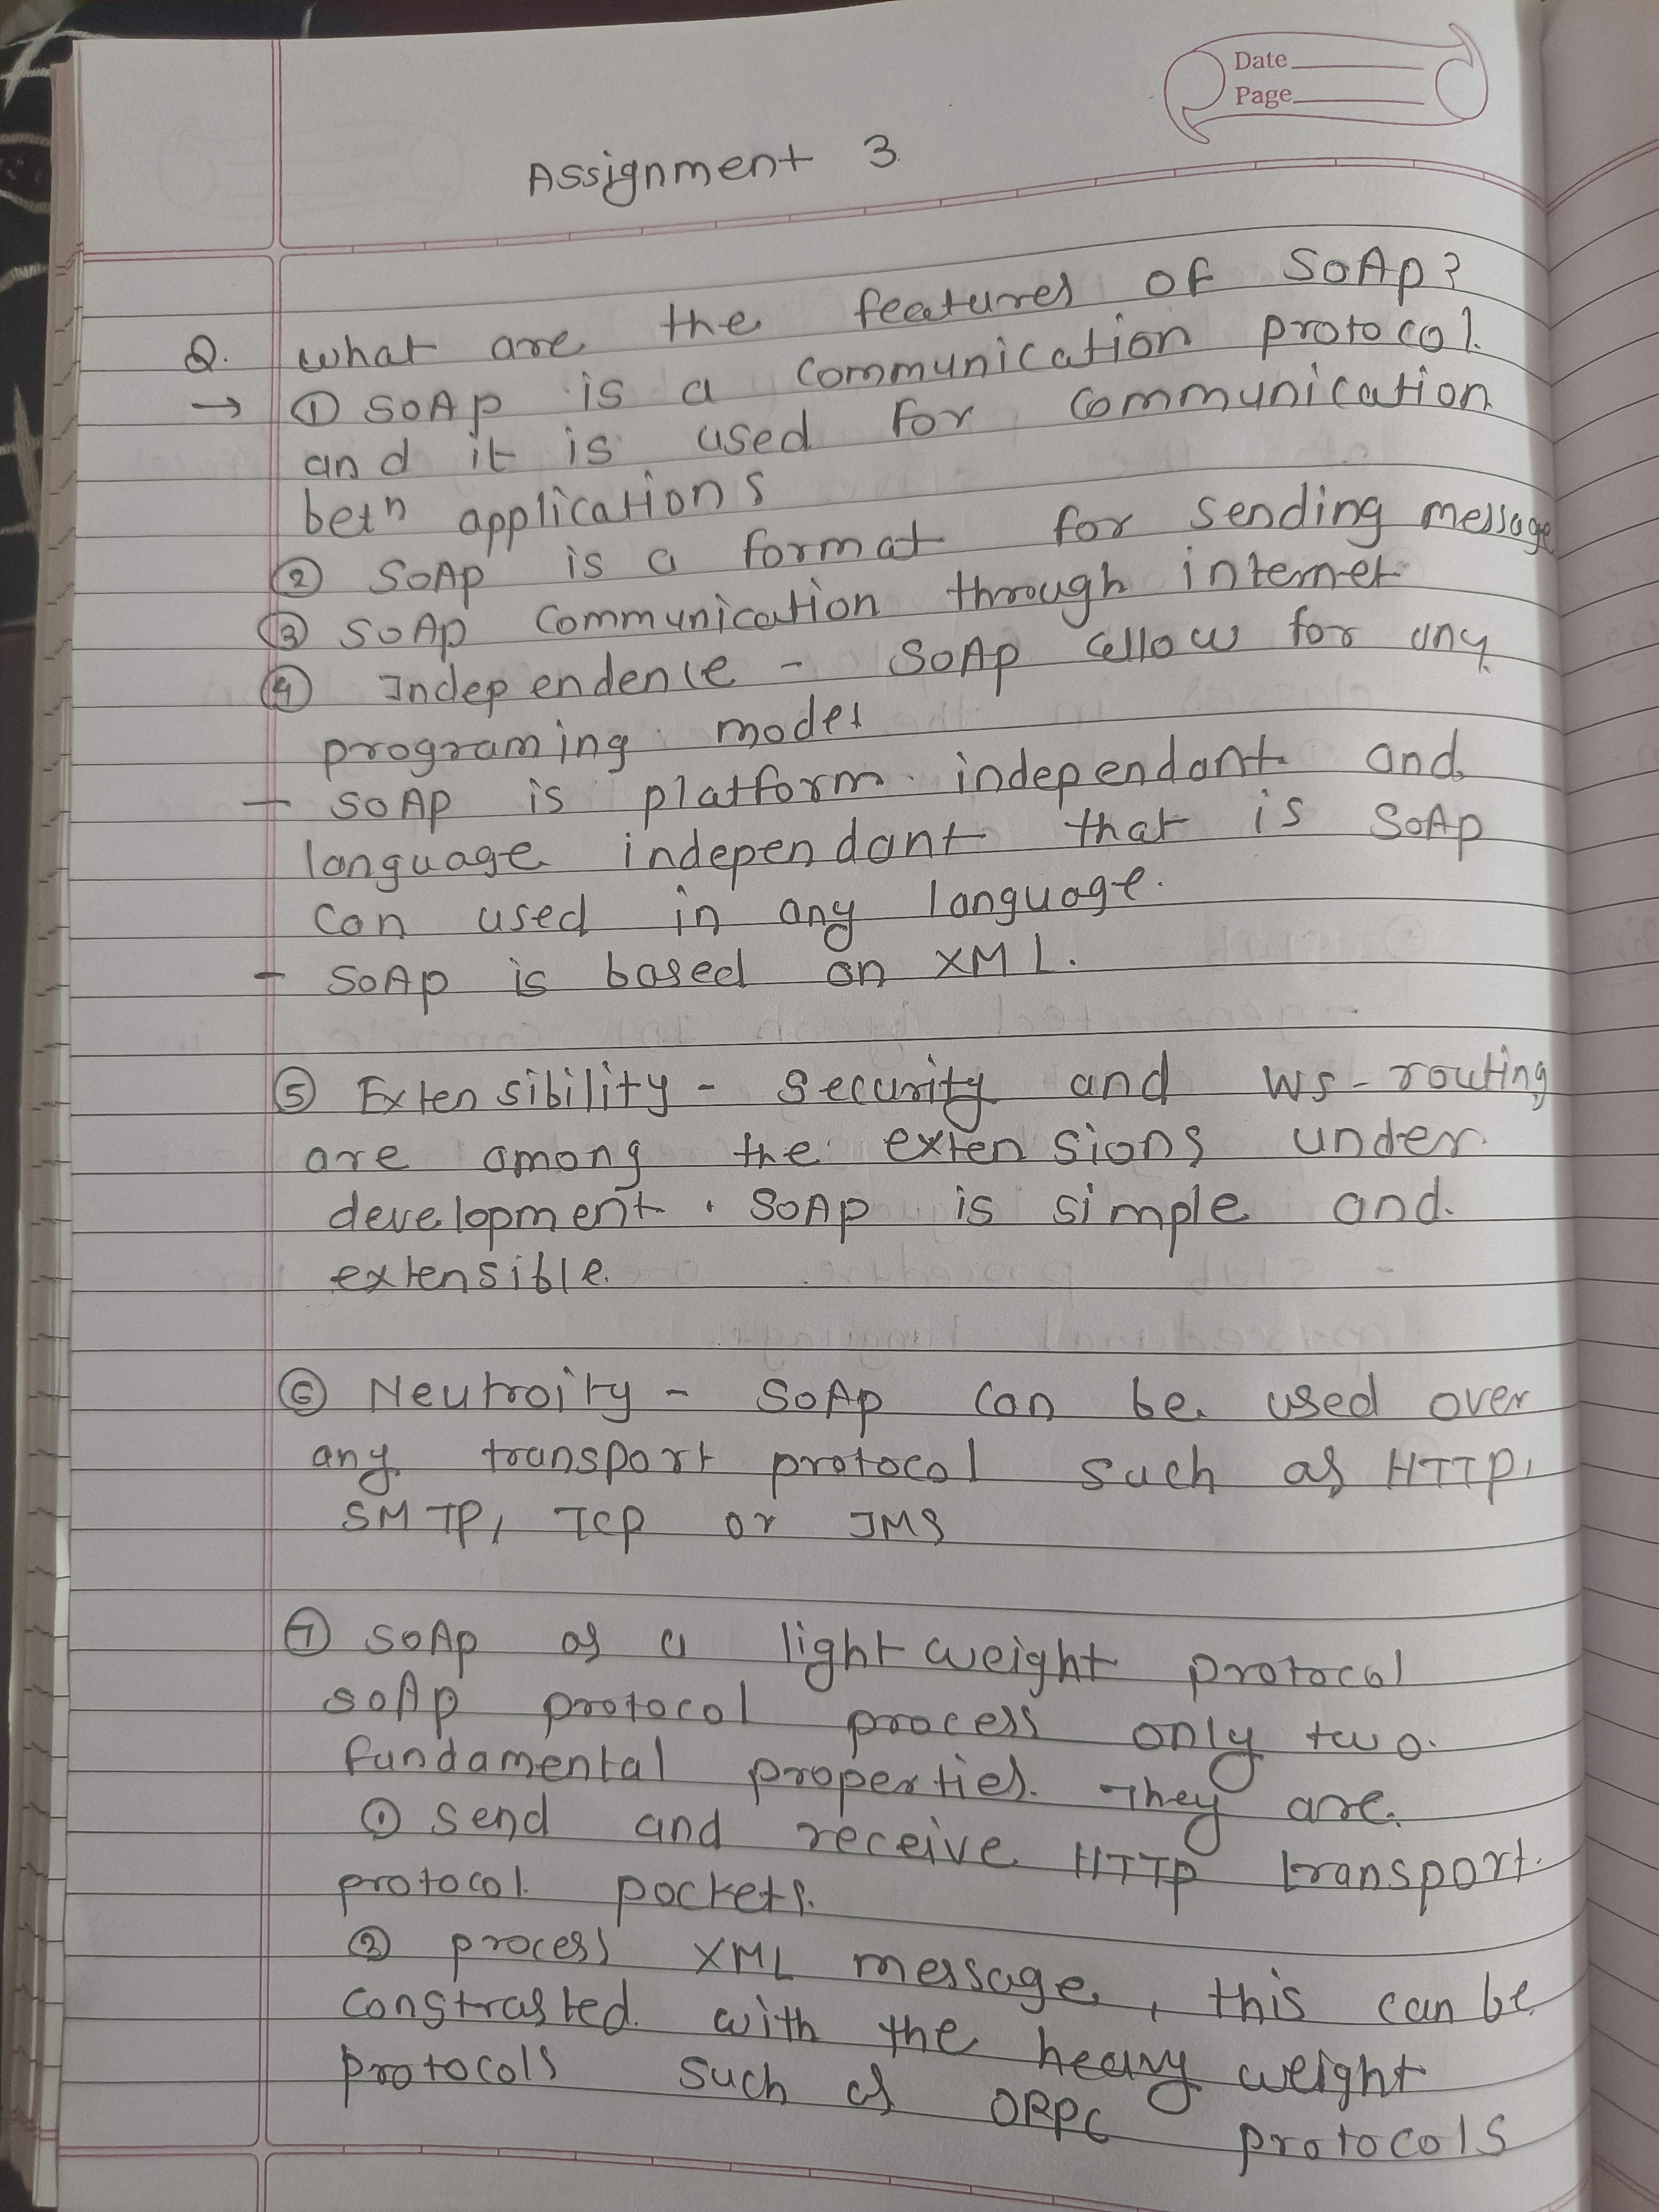 Date
Page
Assignment 3
Q. what are the features of SOAP?
→ ① SOAP is a communication protocol
and it is used for communication
betn applications
② SOAP is a format for sending message
③ SOAP communication through internet
④ Independence - SOAP allow for any
programing model
- SOAP is platform independant and
language independant that is SOAP
can used in any language.
- SOAP is based on XML.
⑤ Extensibility - Security and WS-routing
are among the extensions under
development. SOAP is simple and
extensible.
⑥ Neutroity - SOAP can be used over
any transport protocol such as HTTP,
SMTP, TCP or JMS
⑦ SOAP as a light weight protocol
SOAP protocol process only two
fundamental properties. They are.
① Send and receive HTTP transport
protocol pockets.
② process XML message, this can be
constrasted with the heavy weight
protocols such as ORPC protocols